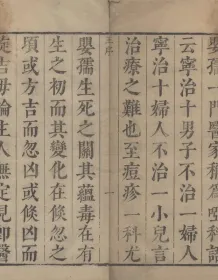 嬰孺一門醫家稱為啞科諺
云寧治十男子不治一婦人
寧治十婦人不治一小兒言
治療之難也至痘疹一科尤
序
一
嬰孺生死之關其蘊毒在有
生之初而其變化在倏忽之
頃或方吉而忽凶或倏凶而
旋吉毋論主人無定見即醫